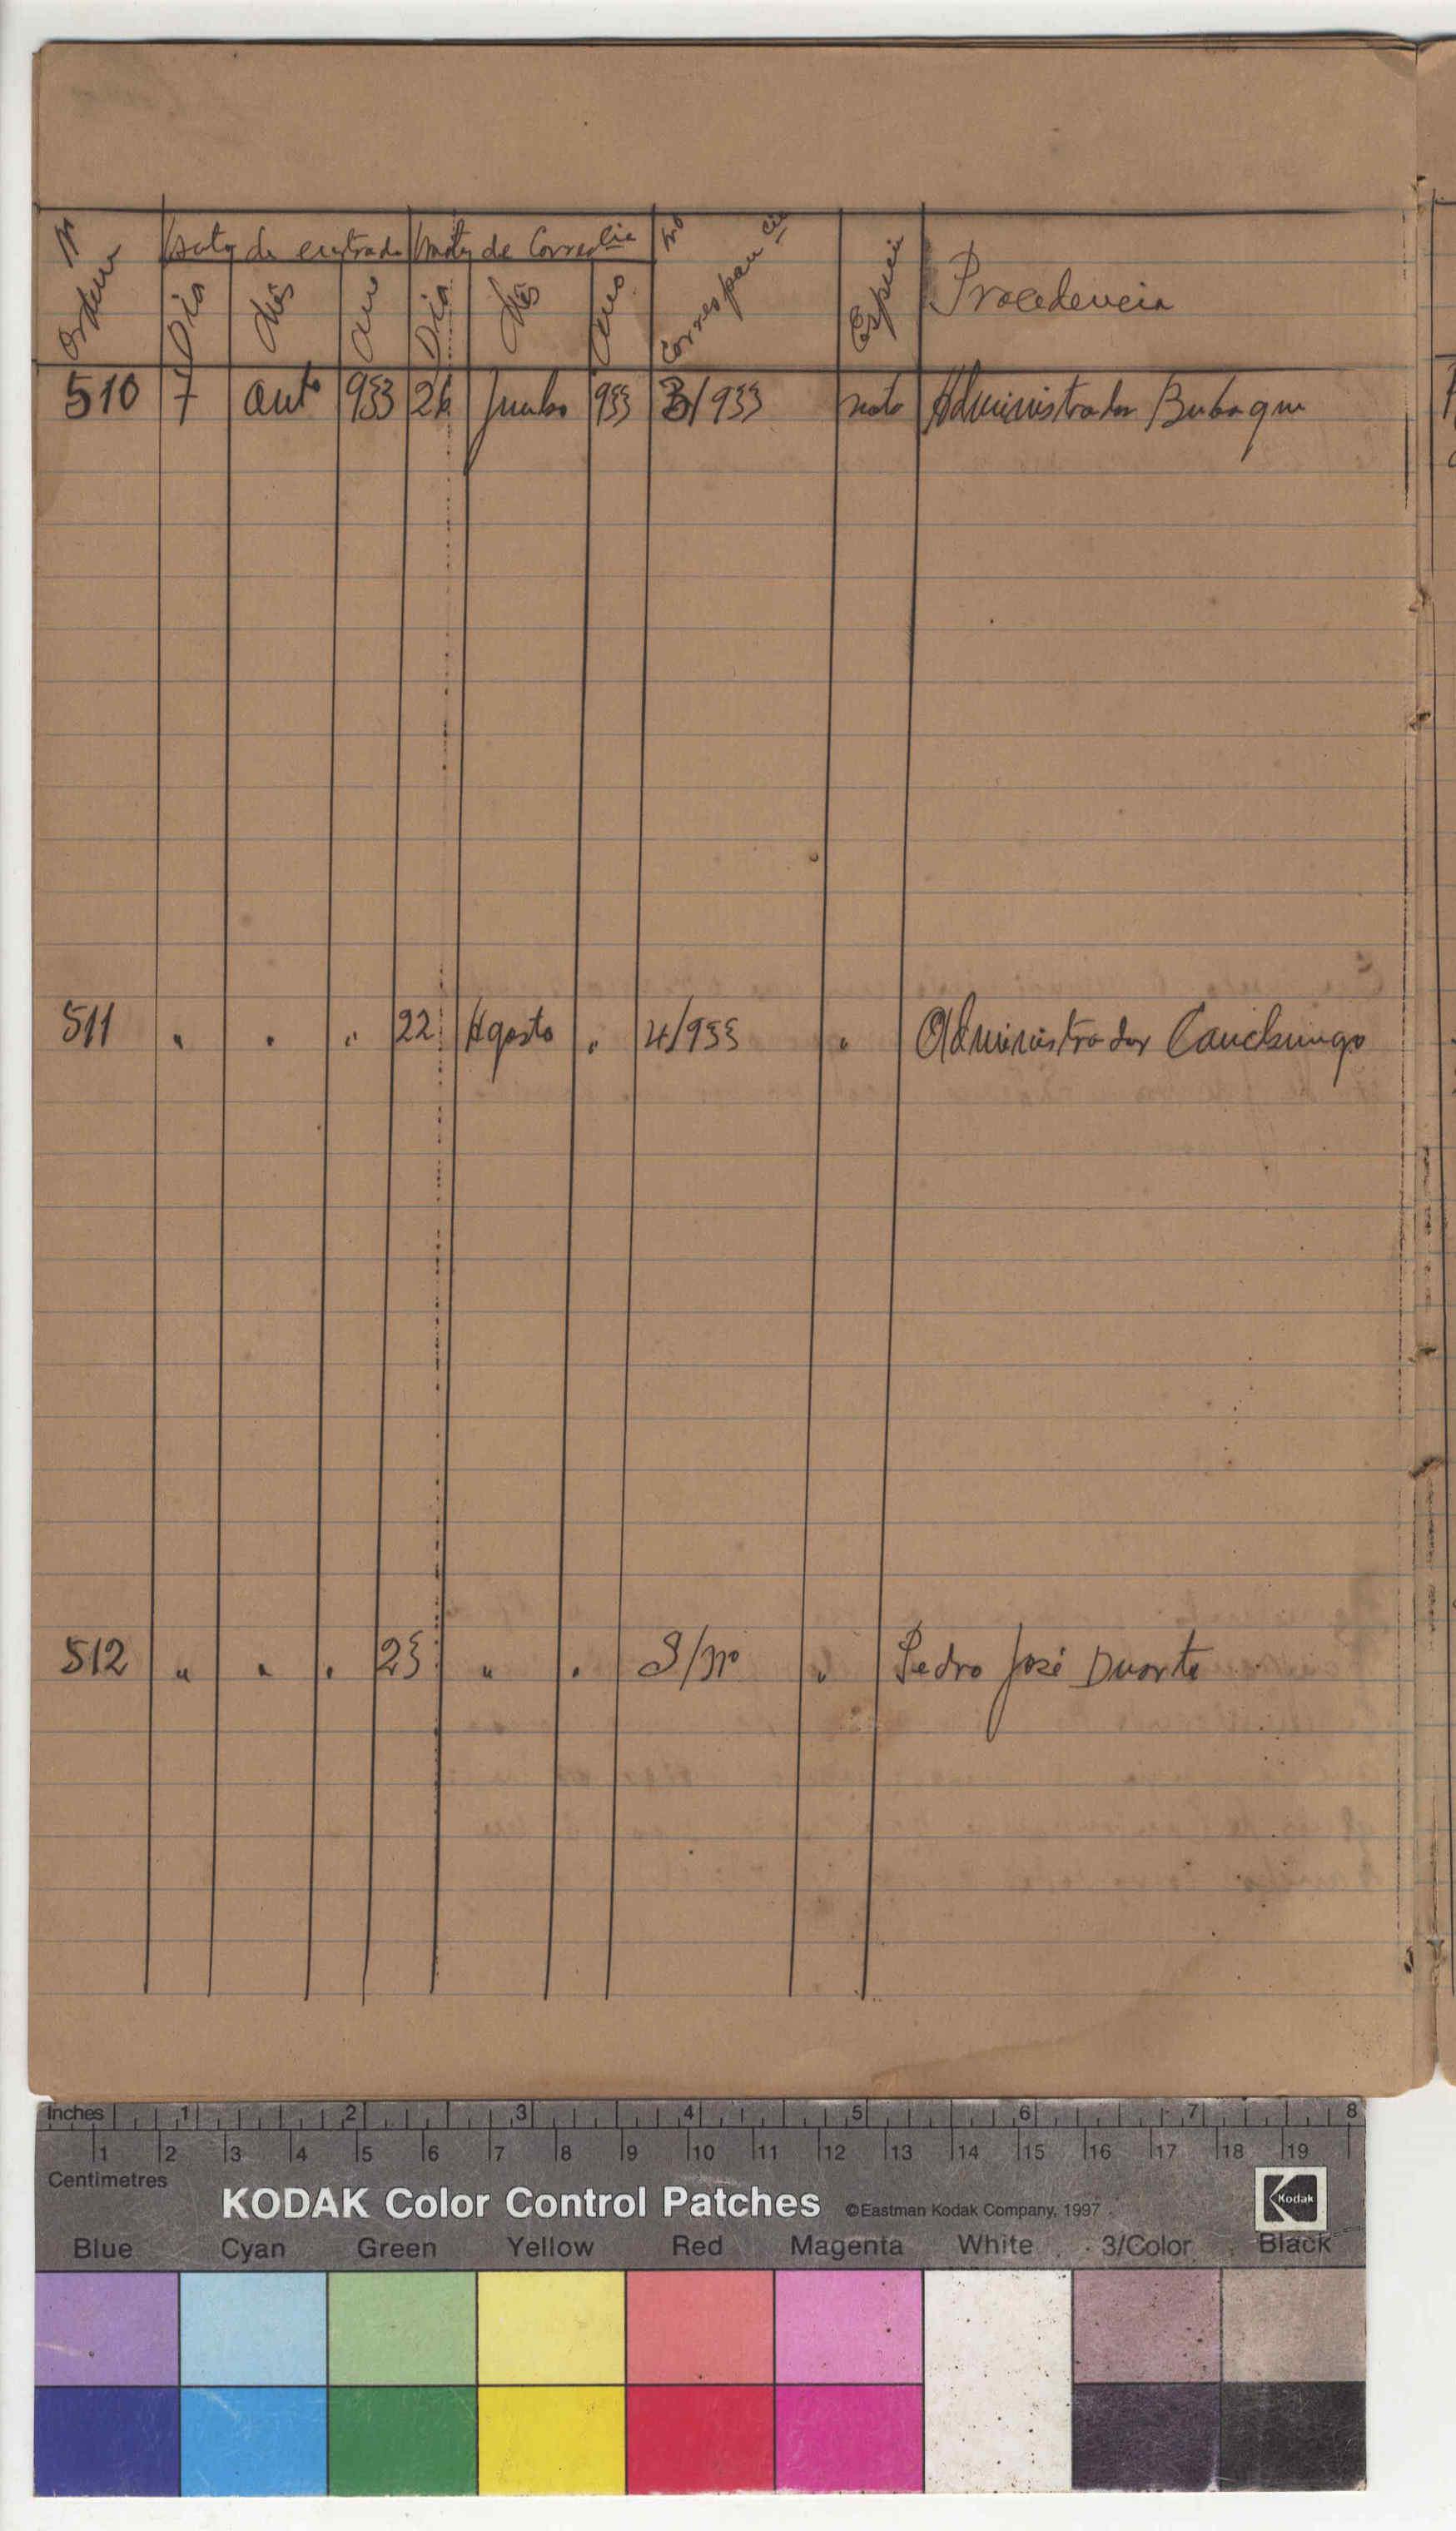 Nº Ordem Data de entrada Data de Corresp.cia Nº Correspondencia Especie Procedencia
Dia Mês ano Dia Mês ano
510 7 Outº 933 26 Junho 933 3/933 nota Administrador Bubaque
511 " " " 22 Agosto " 4/933 " Administrador Canchungo
512 " " " 23 " " S/nº " Pedro José Duarte
Inches 1 2 3 4 5 6 7 8
1 2 3 4 5 6 7 8 9 10 11 12 13 14 15 16 17 18 19
Centimetres
KODAK Color Control Patches ©Eastman Kodak Company, 1997 Kodak
Blue Cyan Green Yellow Red Magenta White 3/Color Black